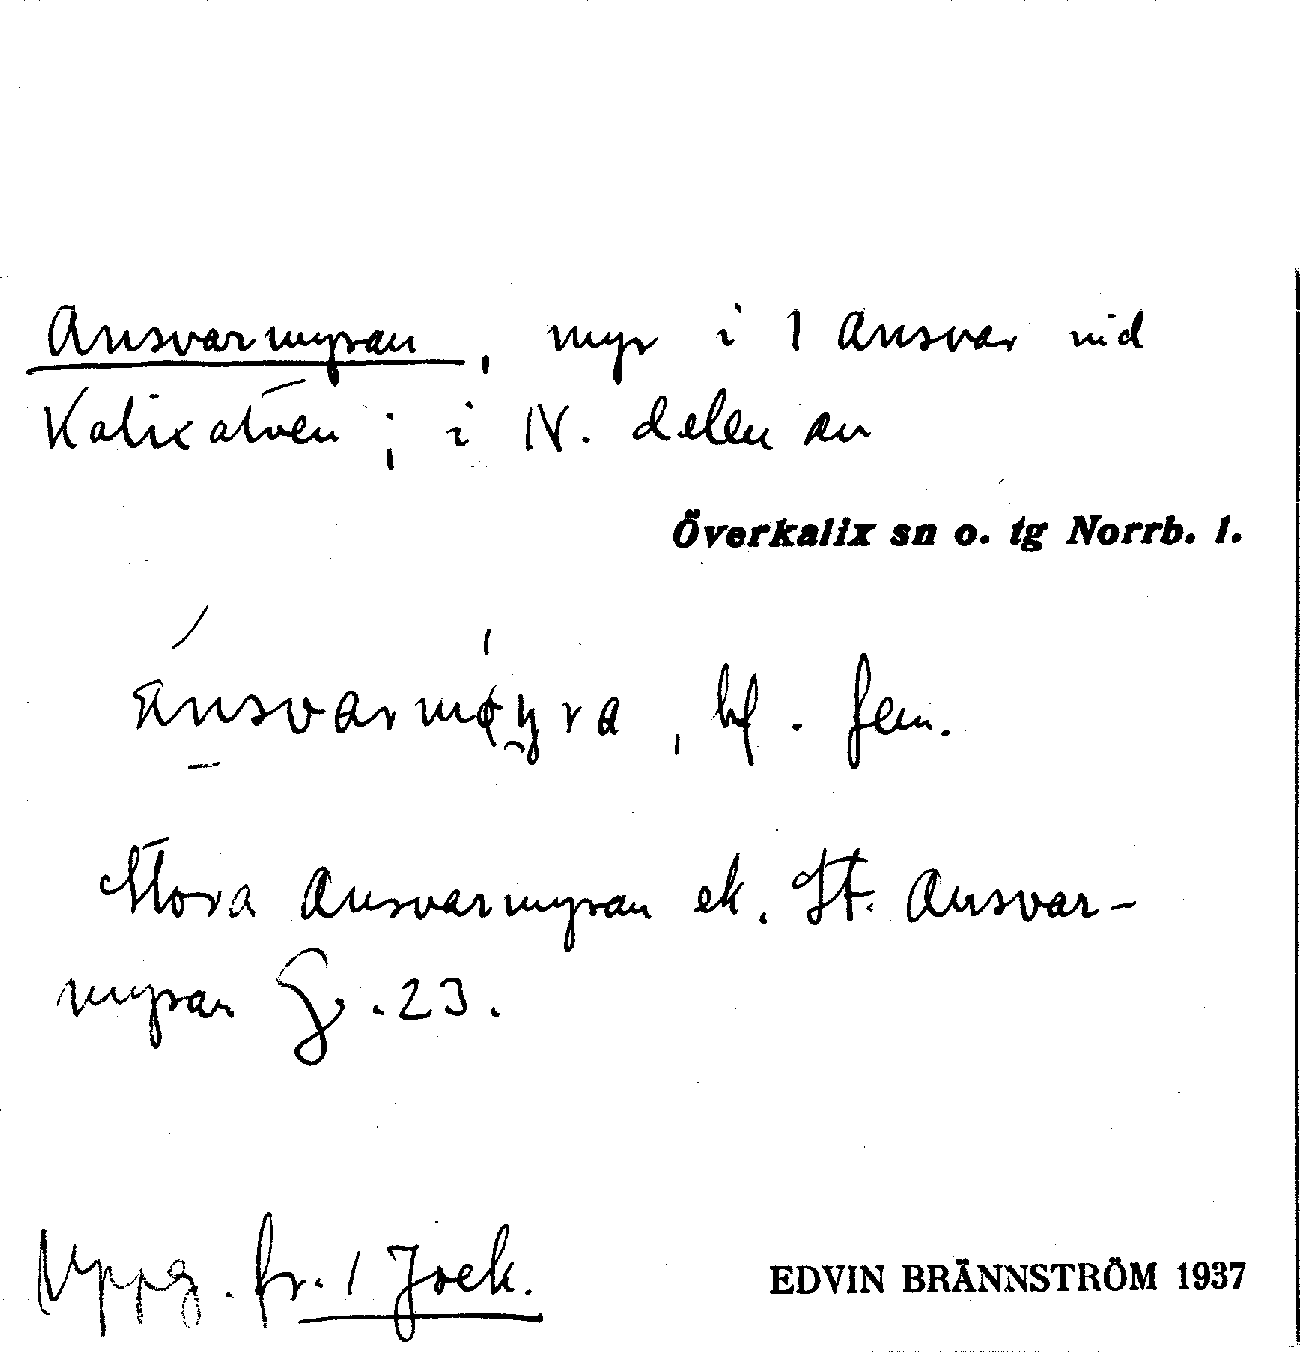 Ansvarmyran, myr i 1 Ansvar vid
Kalixälven; i N. delen av
Överkalix sn o. tg Norrb. l.
ansvarmøyra, bf. fem.
Stora Ansvarmyran ek. St. Ansvar-
myran Gr. 23.
Uppg. fr. 1 Jock.
EDVIN BRÄNNSTRÖM 1937